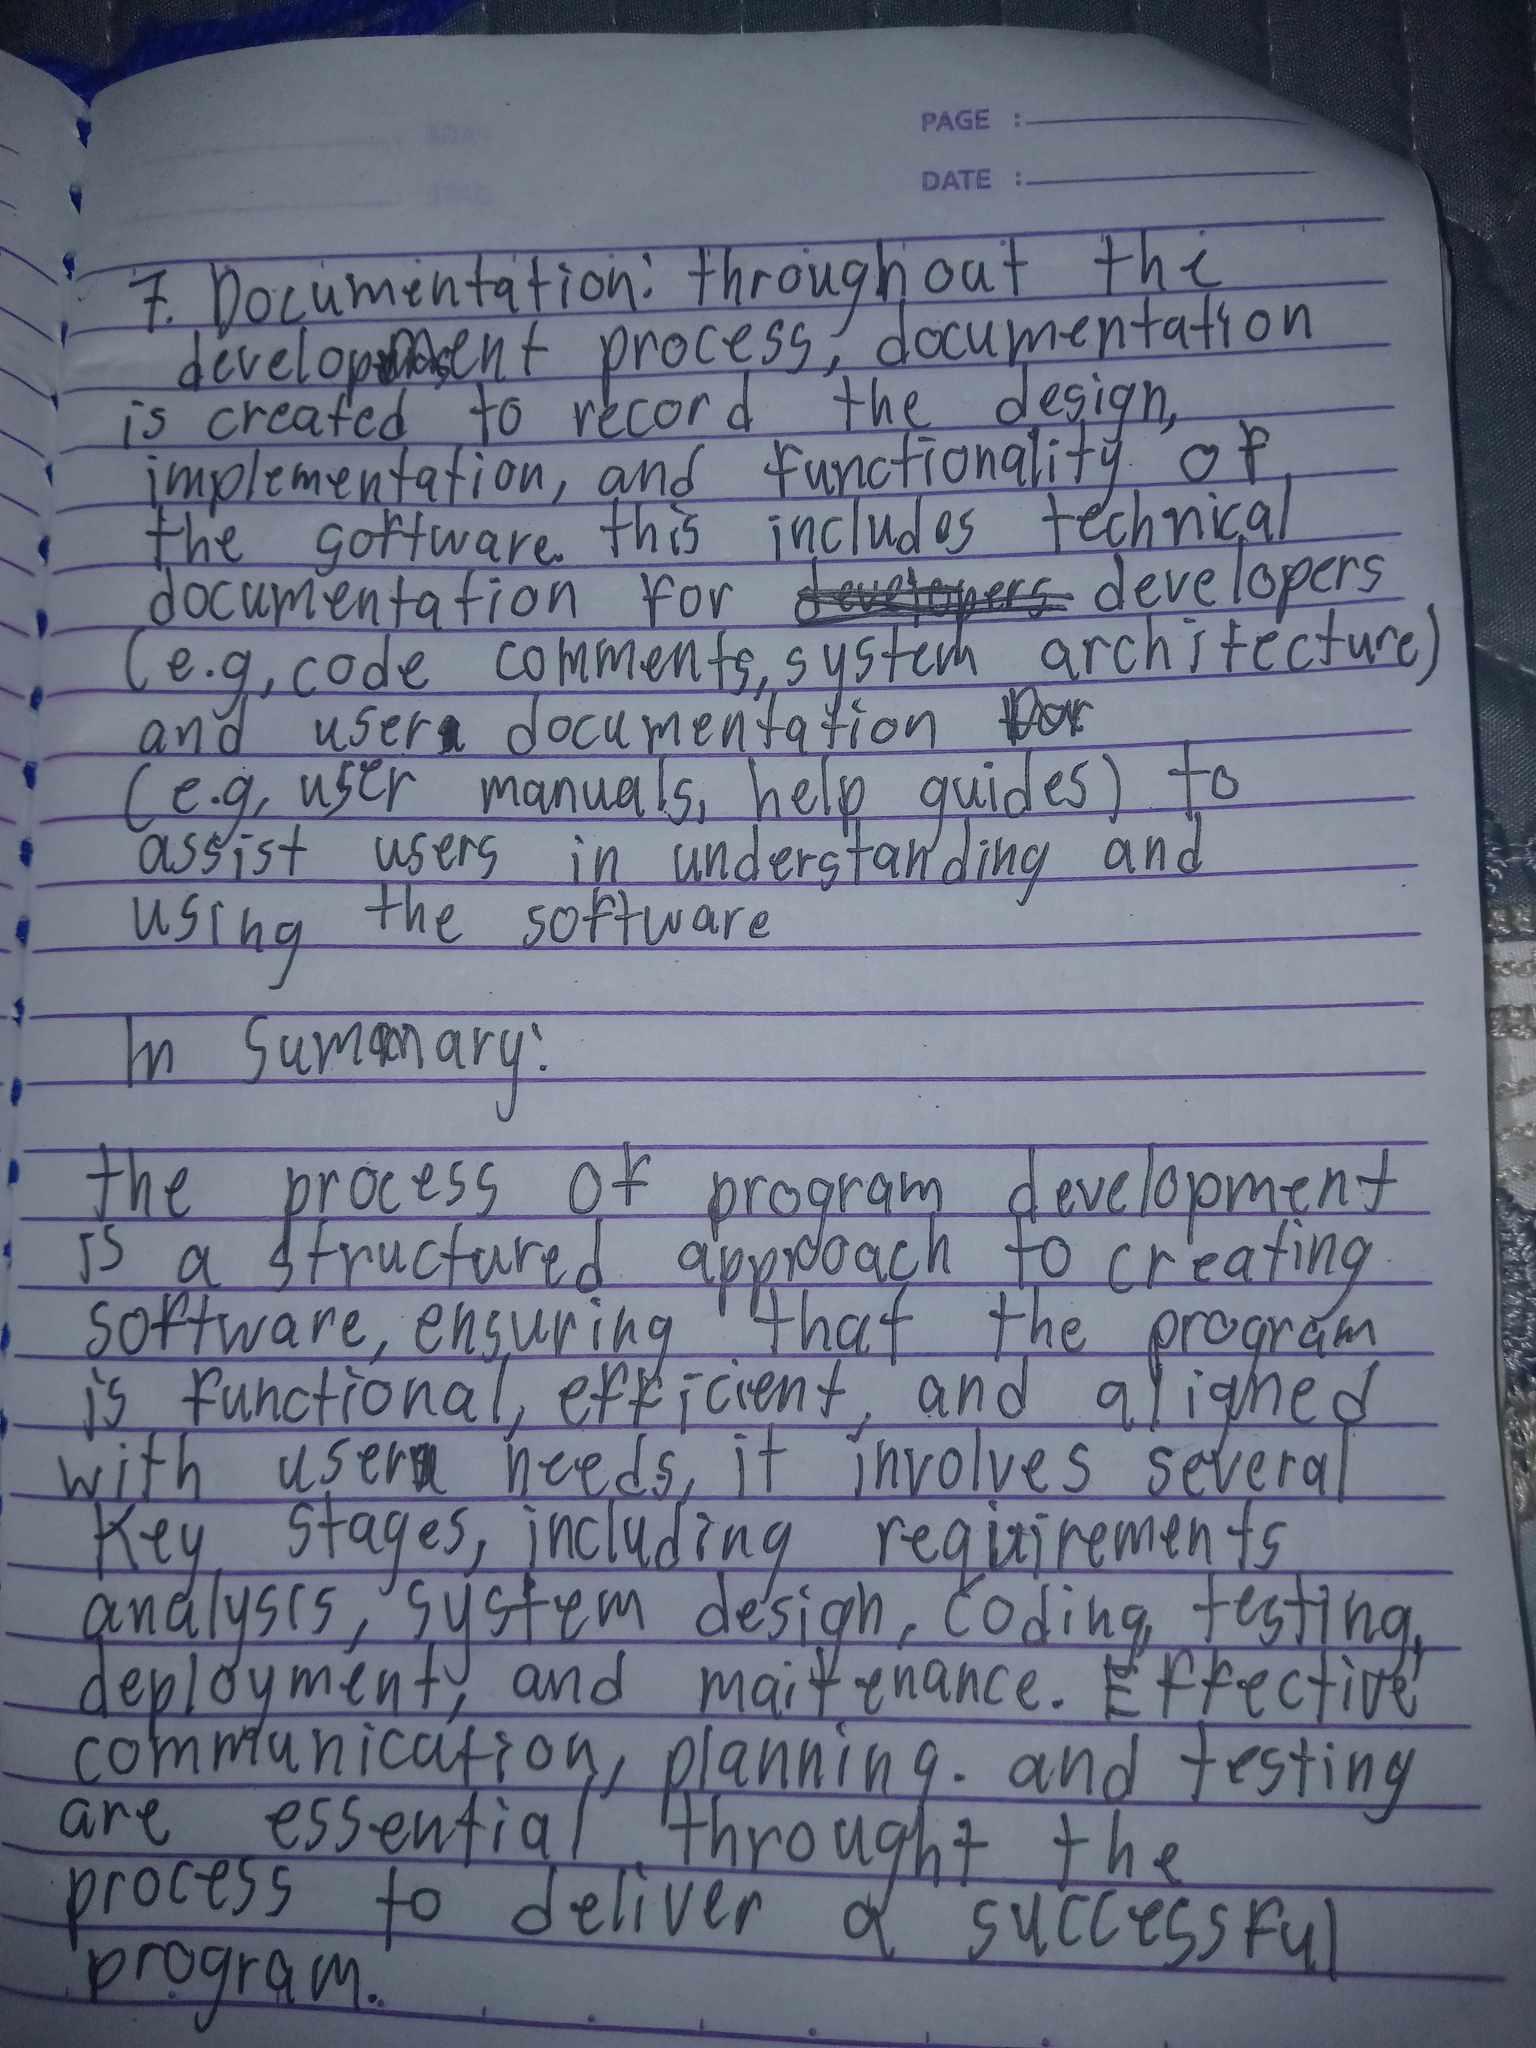 PAGE :
DATE :
7. Documentation: throughout the
development process, documentation
is created to record the design,
implementation, and functionality of
the software. this includes technical
documentation for developers
(e.g, code comments, system architecture)
and user documentation for
(e.g, user manuals, help guides) to
assist users in understanding and
using the software
In Summary:
the process of program development
is a structured approach to creating
software, ensuring that the program
is functional, efficient, and aligned
with user needs, it involves several
Key stages, including requirements
analysis, system design, coding, testing,
deployment, and maitenance. Effective
communication, planning. and testing
are essential throught the
process to deliver a successful
program.